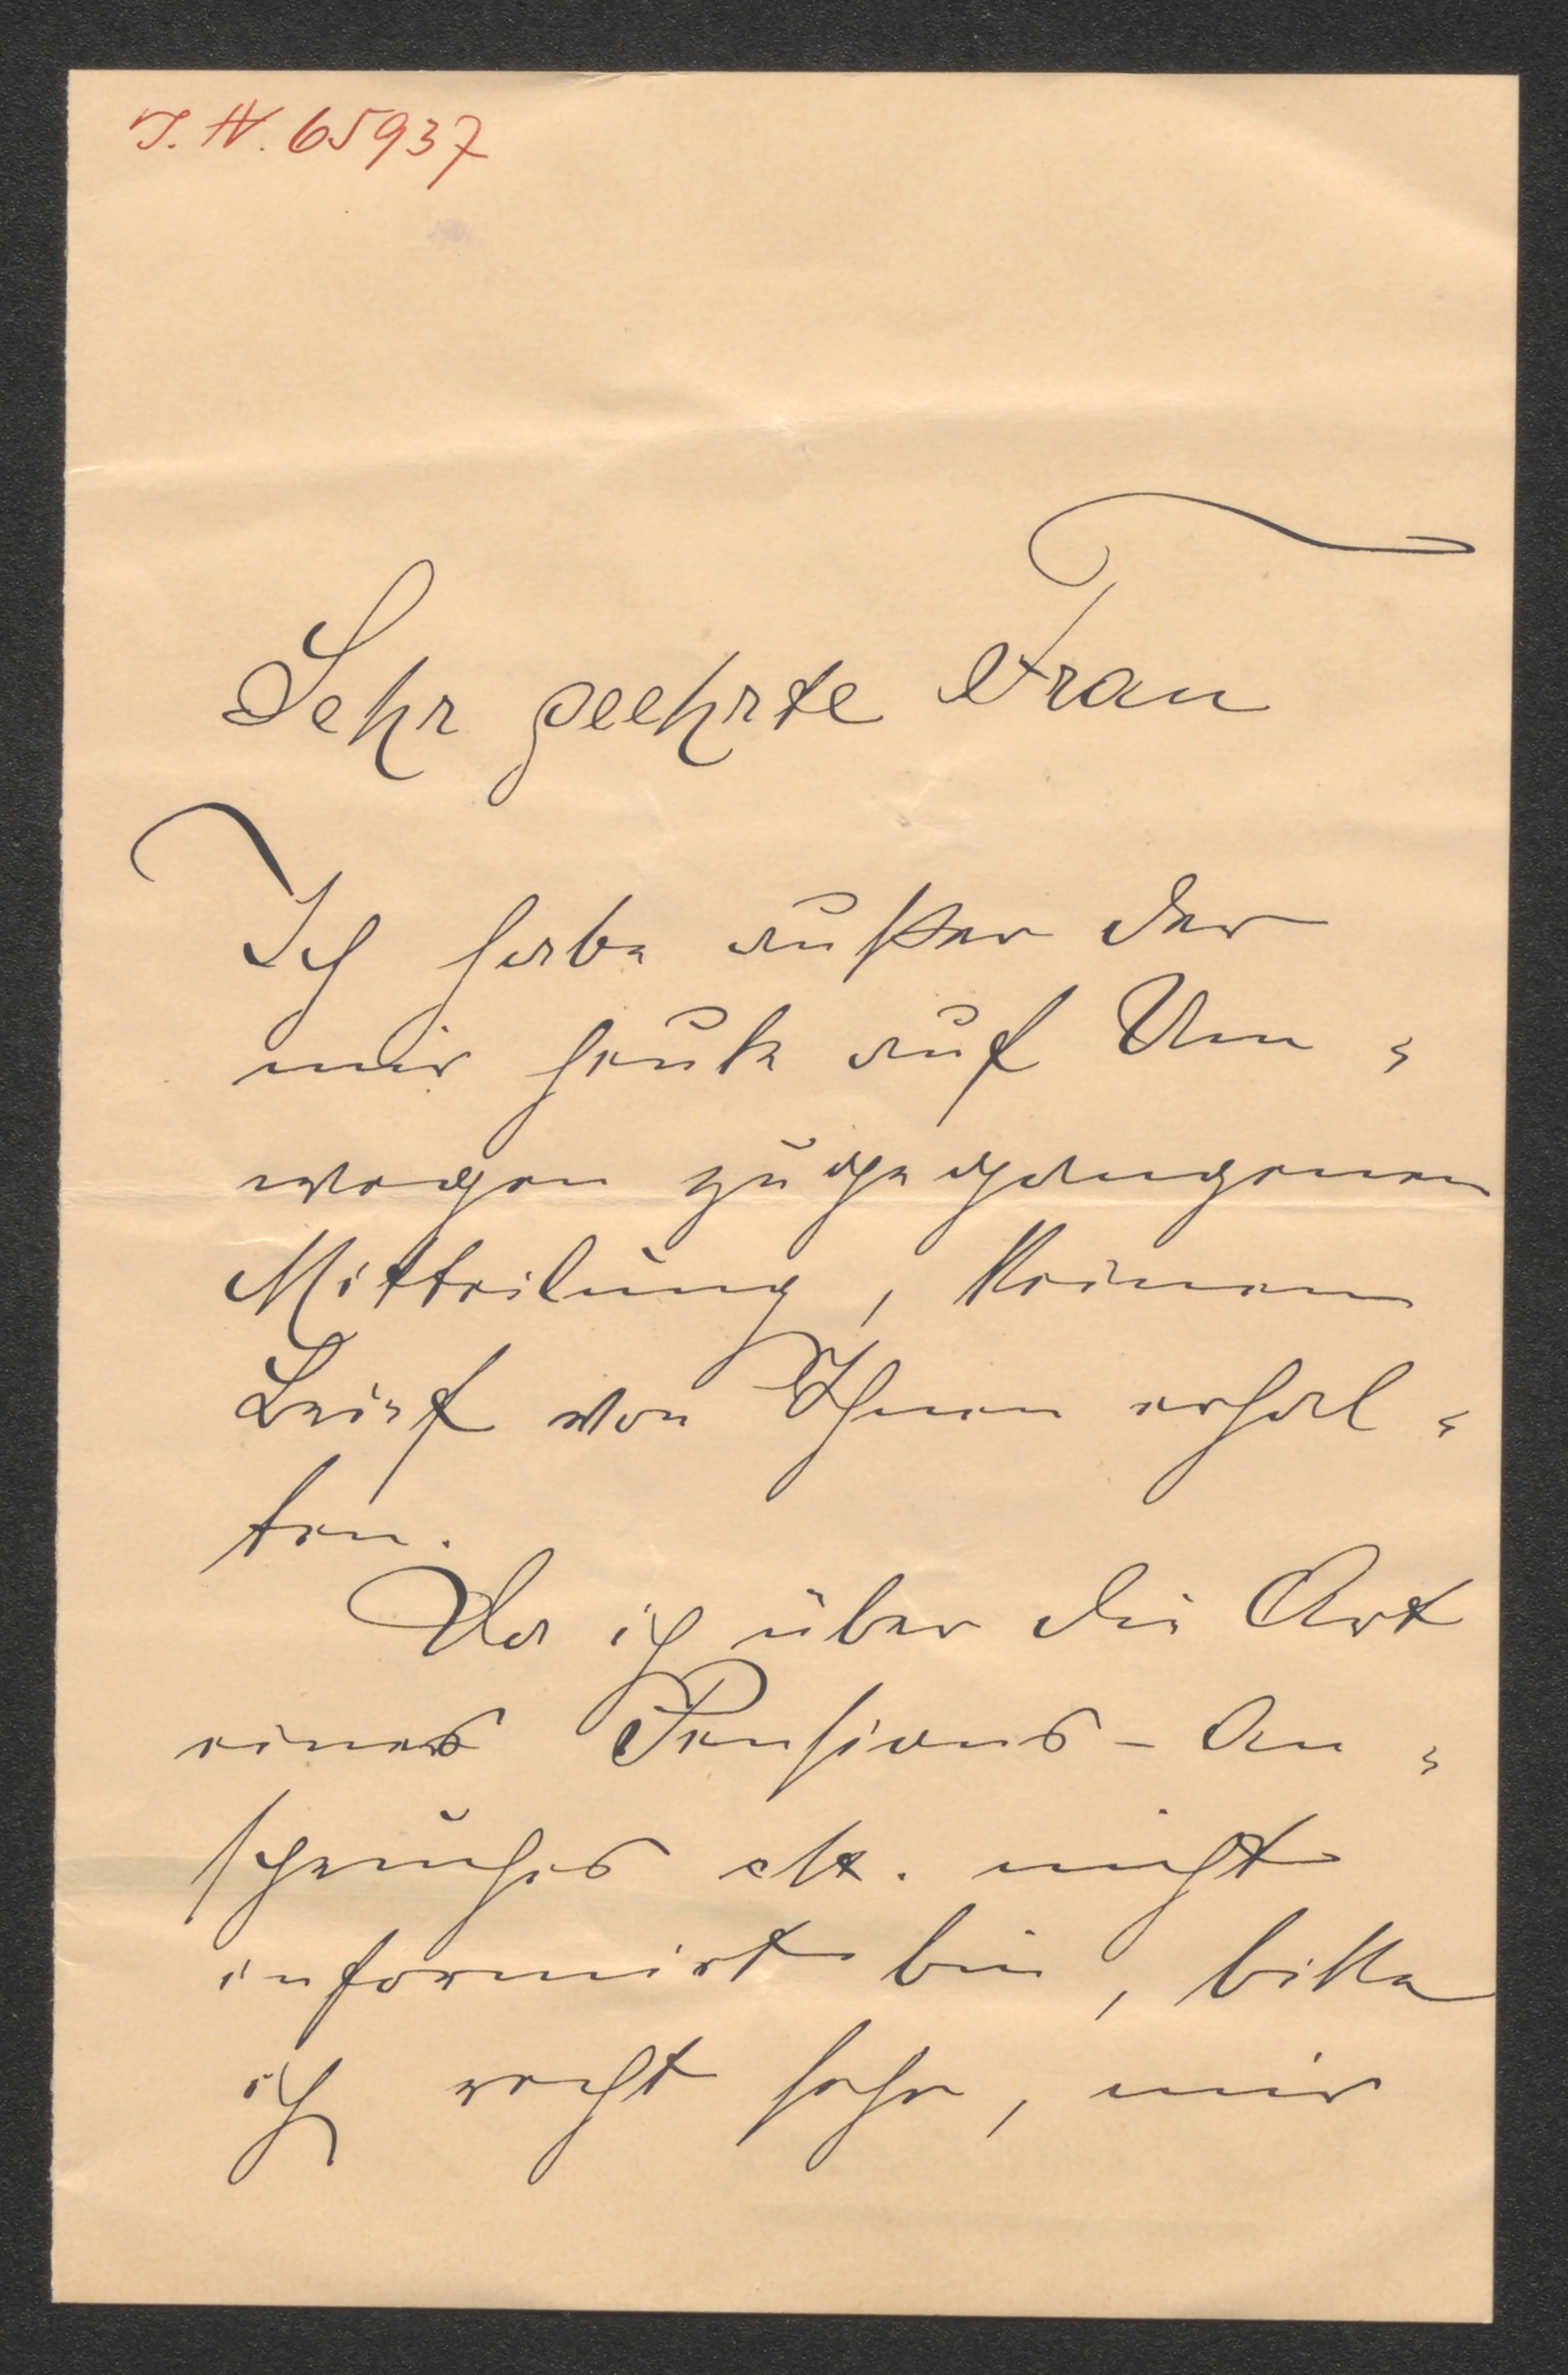 I. N. 65937
Sehr geehrte Frau
Ich habe außer der
mir heute auf Um-
wegen zugegangenen
Mitteilung, keinen
Brief von Ihnen erhal-
ten.
Da ich über die Art
eines Pensions-An-
spruches etc. nicht
informirt bin, bitte
ich recht sehr, mir